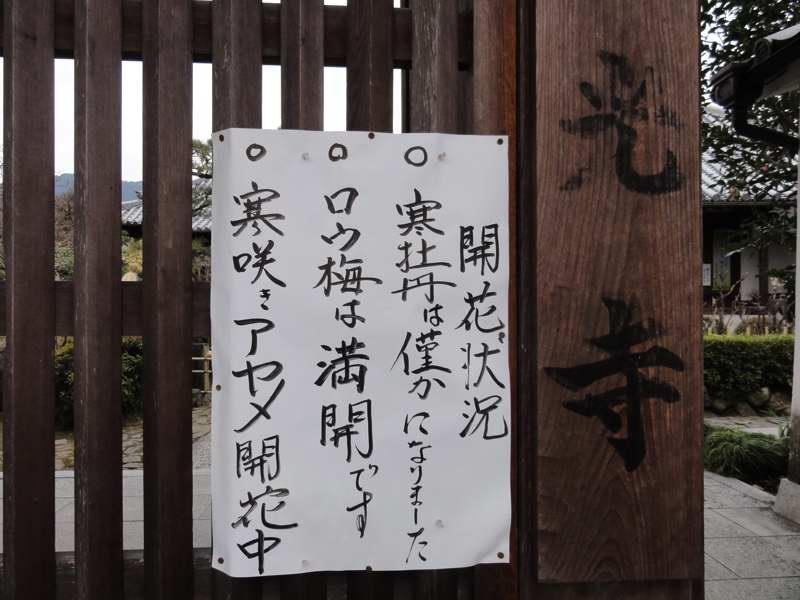 光寺
開花状況
○寒牡丹は僅かになりました
○ロウ梅は満開です
○寒咲きアヤメ開花中